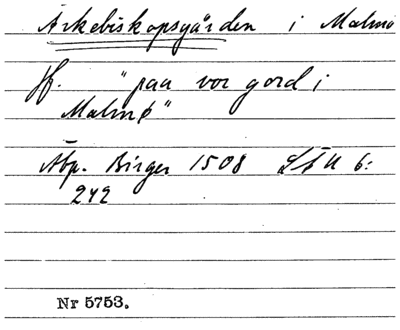 Ärkebiskopsgården i Malmö
Jf. "paa vor gord i
Malmø"
Äbp. Birger 1508 LÄU 6:
242
Nr 5753.